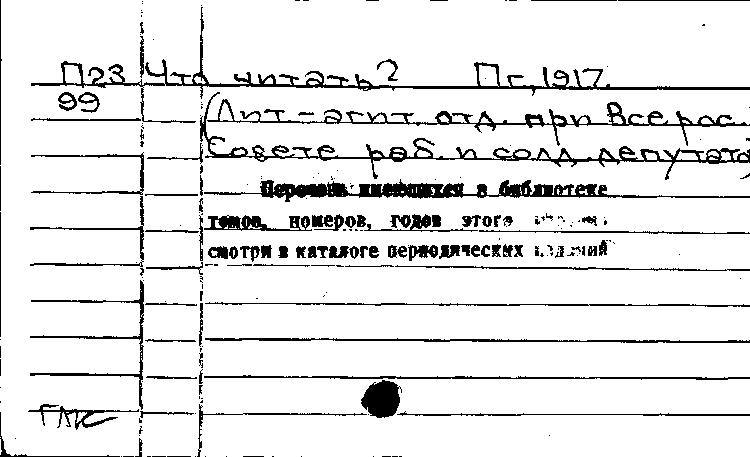 П23 Что читать? Пг., 1917.
99 (Лит-агит. отд. при Всерос.
Совете раб. и солд. депутато
Перечень имеющихся в библиотеке
томов, номеров, годов этого
смотри в каталоге периодических изданий
ГПК